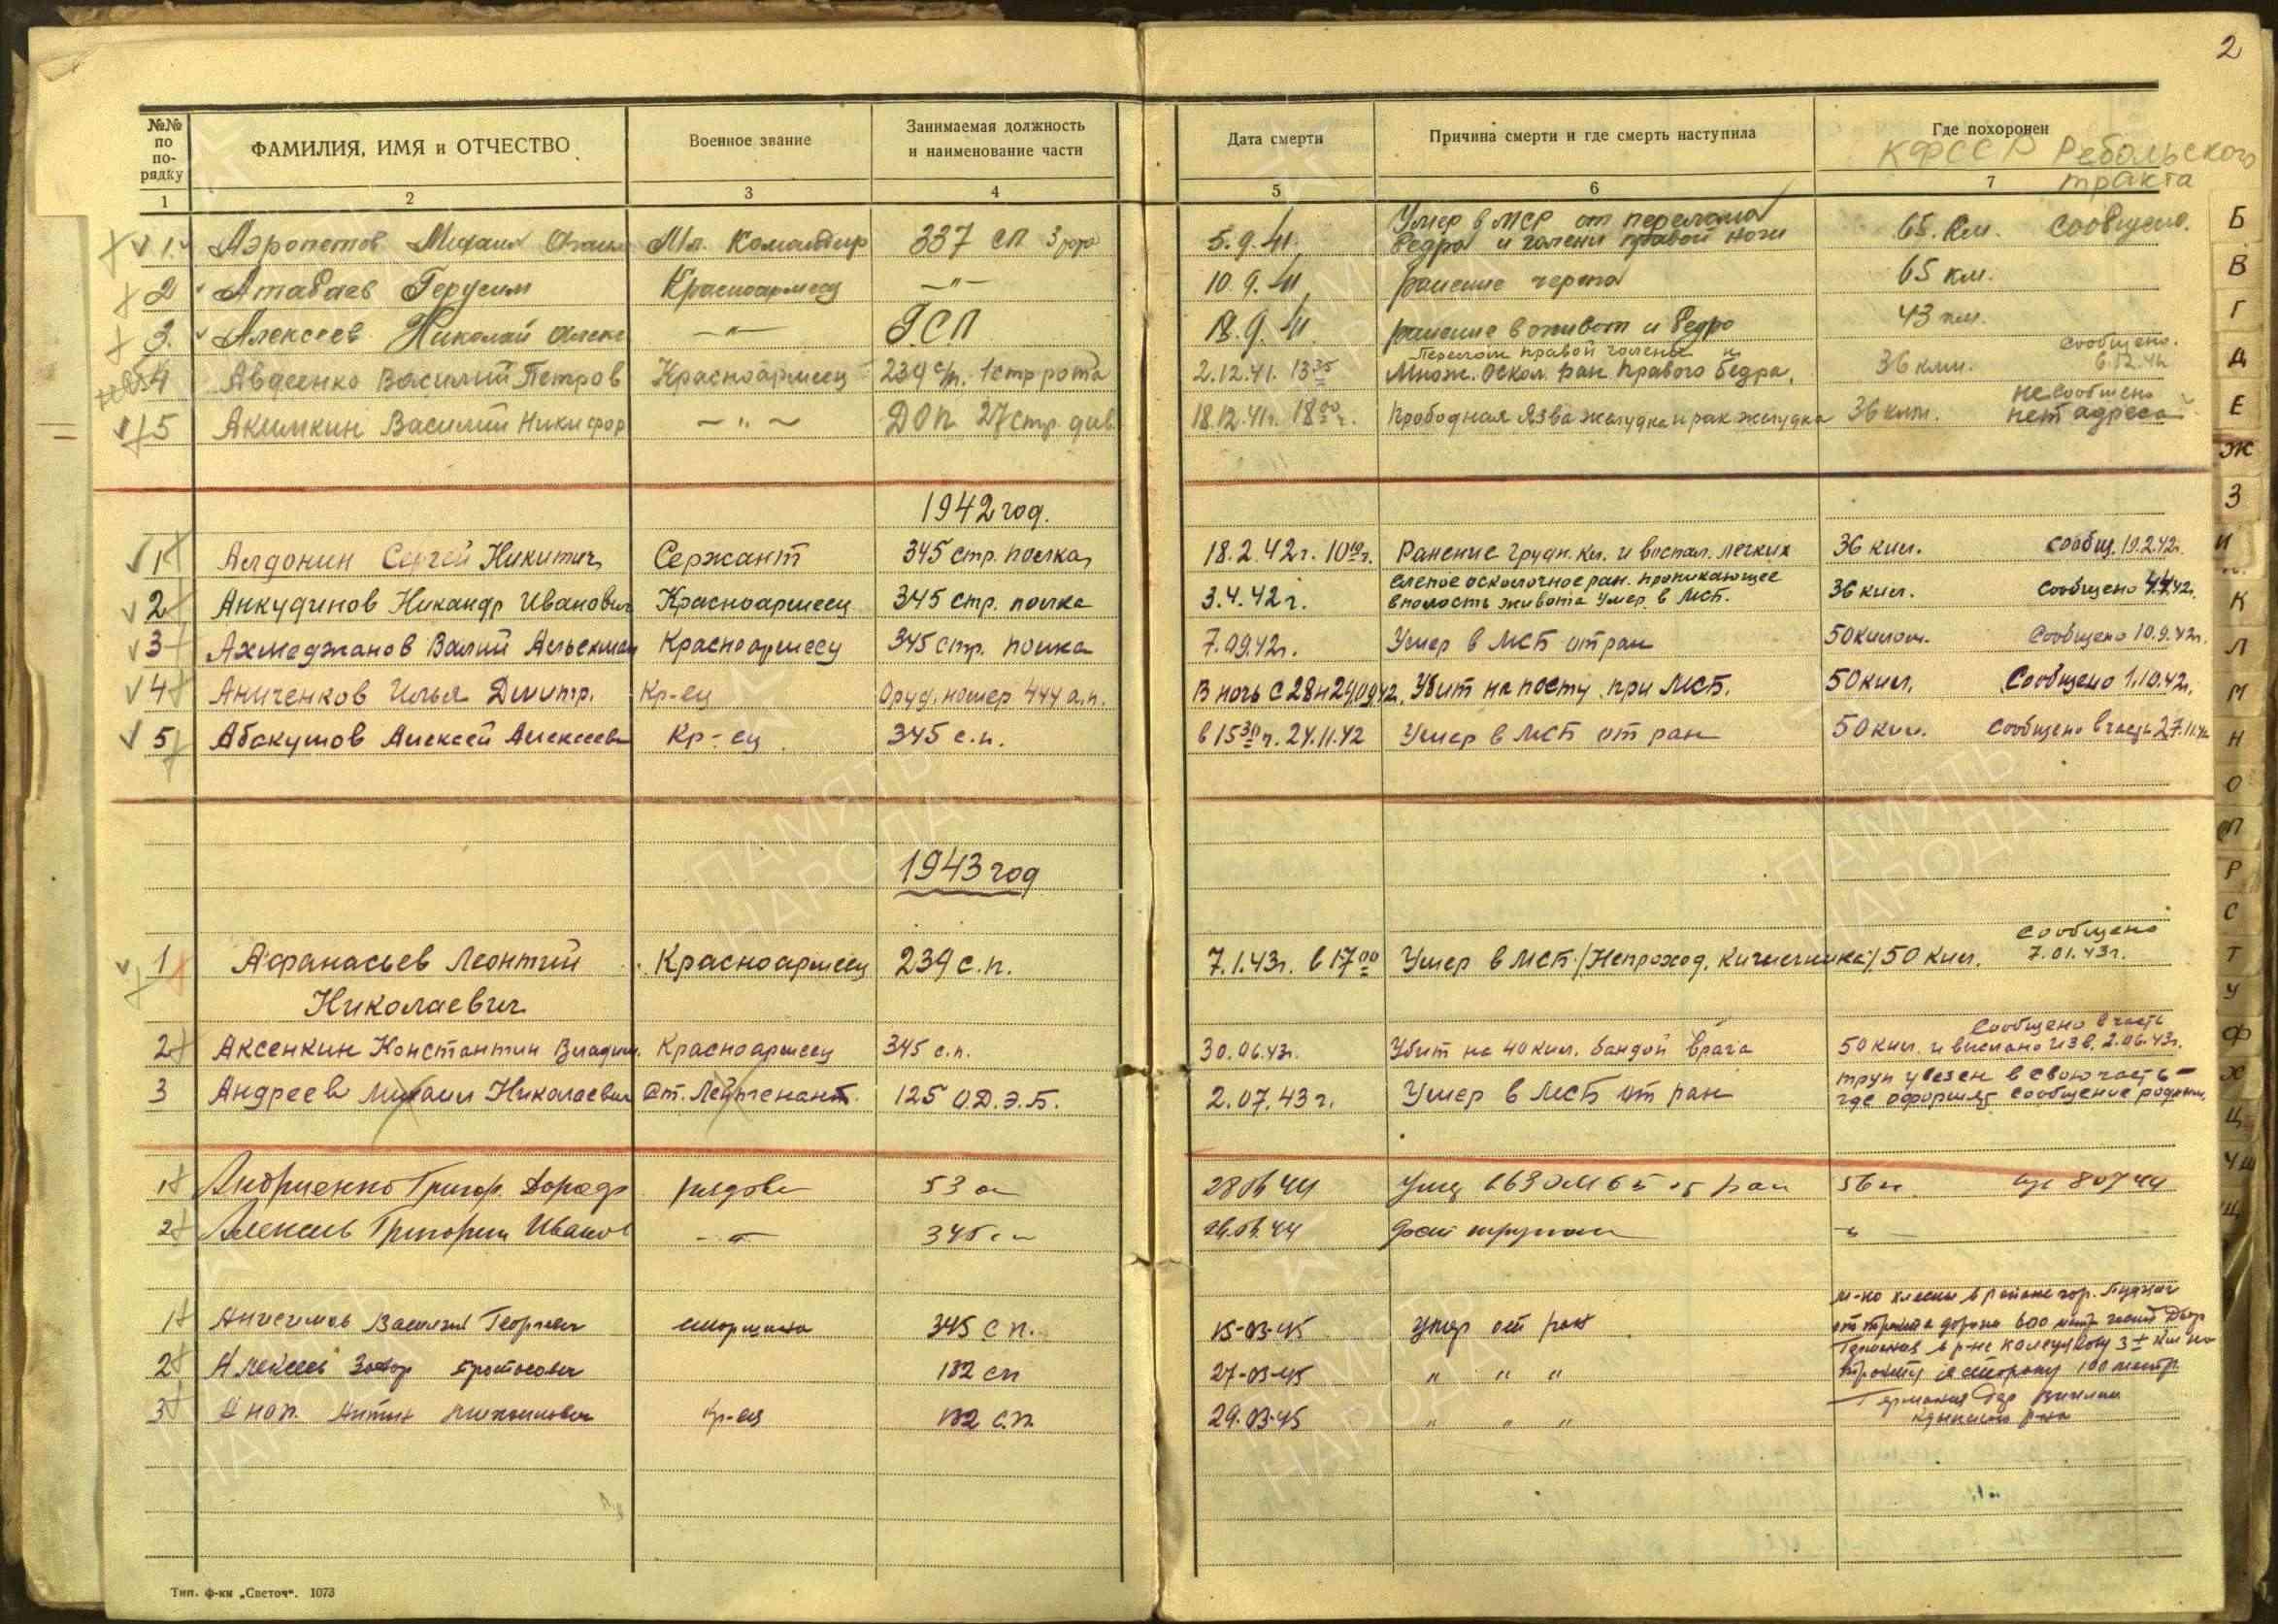 2
№№ по по- рядку
ФАМИЛИЯ, ИМЯ и ОТЧЕСТВО
Военное звание
Занимаемая должность и наименование части
Дата смерти
Причина смерти и где смерть наступила
Где похоронен
КФССР Ребольского
тракта
1 2 3 4 5 6 7
1. Аэропетов Михаил Мл. Командир 337 СП 3 рота 5.9.41. Умер в МСР от перелома бедра и голени правой ноги 65. км. сообщено.
2 Атабаев Герусим Красноармеец —"— 10.9.41 ранение черепа 65 км.
3. Алексеев Николай Алекс —"— ГСП 18.9.41 ранение в живот и бедро 43 км.
4 Авдеенко Василий Петров Красноармеец 239 с/п. 1 стр рота 2.12.41. 13 35 Перелом правой голени и Множ. оскол. ран. правого бедра. 36 клм. сообщено. 6.12.41
5 Акимкин Василий Никифор — " — ДОП 27 стр. див. 18.12.41г. 18 00 ч. Прободная язва желудка и рак желудка 36 клм. не сообщено нет адреса
1942 год.
1 Алдонин Сергей Никитич Сержант 345 стр. полка 18.2.42г. 10 10 ч. Ранение грудн. кл. и воспал. легких 36 клм. сообщ. 19.2.42г.
2 Анкудинов Никандр Иванович Красноармеец 345 стр. полка 3.4.42г. Слепое осколочное ран. проникающее в полость живота умер в МСБ. 36 клм. Сообщено 4.4.42г.
3 Ахмеджанов Валий Красноармеец 345 стр. полка 7.09.42г. Умер в МСБ от ран 50 килом. Сообщено 10.9.42г.
4 Аниченков Илья Дмитр. Кр-ец Оруд. номер 444 а.п. В ночь с 28 н 29.09.42. Убит на посту при МСБ. 50 клм. Сообщено 1.10.42г.
5 Абакумов Алексей Алексеев Кр-ец 345 с.п. в 15 30 ч. 24.11.42 Умер в МСБ от ран 50 клм. Сообщено в часть 27.11.42
1943 год
1 Афанасьев Леонтий Красноармеец 239 с.п. 7.1.43г. в 17 00 Умер в МСБ /Непроход. кишечника/ 50 клм. сообщено 7.01.43г.
Николаевич
2 Аксенкин Константин Владим. Красноармеец 345 с.п. 30.06.43г. Убит на 40 клм. бандой врага 50 клм. Сообщено в часть и выслано изв. 2.06.43г.
3 Андреев Михаил Николаевич Ст. Лейтенант. 125 О.Д.Э.Б. 2.07.43г. Умер в МСБ от ран труп увезен в свою часть – где оформят сообщение родным.
1 Андриенко Григор. рядовой 53 28 06 44 Умер от ран 56 к 8 07 44
2 Алексеев Григорий Иванов —"— 345 сп 26.06.44
1 Анисимов Василий Георгиев старшина 345 с п. 15-03-45 умер от ран в районе гор.
2 Алексеев 132 сп 27-03-45 " " " в сторону 100 метр.
3 Антип Михайлович кр-ец 132 с.п. 29.03.45 " " " Германия
Б
В
Г
Д
Е
Ж
З
И
К
Л
М
Н
О
П
Р
С
Т
У
Ф
Х
Ц
Ч Ш
Щ
Тип. ф-ки „Светоч“. 1073
ПАМЯТЬ НАРОДА